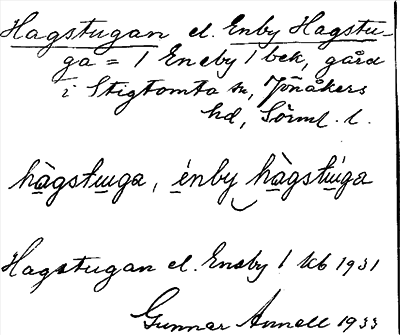 Hagstugan el. Enby Hagstu-
ga = 1 Eneby 1 bek, gård
i Stigtomta sn, Jönåkers
hd, Sörml. l.
hàgstuga, énby hàgstúga
Hagstugan el. Eneby 1 kb 1931
Gunnar Annell 1933